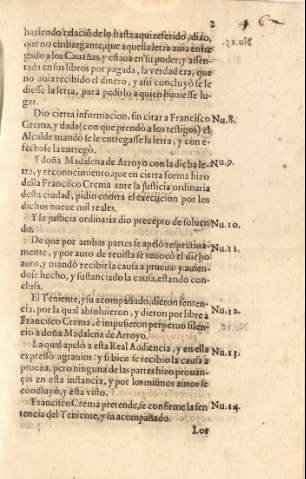 2
haziendo relacion de lo hasta aqui referido, dixo,
que no embargante, que aquella letra auia entre
gado a los Cauañas, y estaua en su poder, y assen-
tada en sus libros por pagada, la verdad era, que
no auia recibido el dinero, y assi concluyò se le
diesse la letra, para pedirlo a quien huuiesse lu-
gar.
Dio cierta informacion, sin citar a Francisco Nu.8.
Crema, y dada (con que prendò a los testigos) el
Alcalde mandò se le entregasse la letra, y con e-
fecto se la entregò.
Y doña Madalena de Arroyo con la dicha le- Nu.9.
tra, y reconocimiento, que en cierta forma hizo
della Francisco Crema ante la justicia ordinaria
desta ciudad, pidio contra el execucion por los
dichos nueue mil reales.
Y la justicia ordinaria dio precepto de soluen Nu.10.
do.
De que por ambas partes se apelò respectiua- Nu.11.
mente, y por auto de reuista se reuocò el dicho
auto, y mandò recibir la causa a prueua: y auien-
dose hecho, y sustanciado la causa, estando con-
clusa.
El Teniente, y su acompañado, dieron senten- Nu.12.
cia, por la qual absoluieron, y dieron por libre a
Francisco Crema, è impusieron perpetuo silen-
cio a doña Madalena de Arroyo.
La qual apelò a esta Real Audiencia, y en ella Nu.13.
expressò agrauios: y si bien se recibio la causa a
prueua, pero ninguna de las partes hizo prouan-
ças en esta instancia, y por los mismos autos se
concluyò, y esta visto.
Francisco Crema pretende, se confirme la sen Nu.14.
tencia del Teniente, y su acompañado.
Los